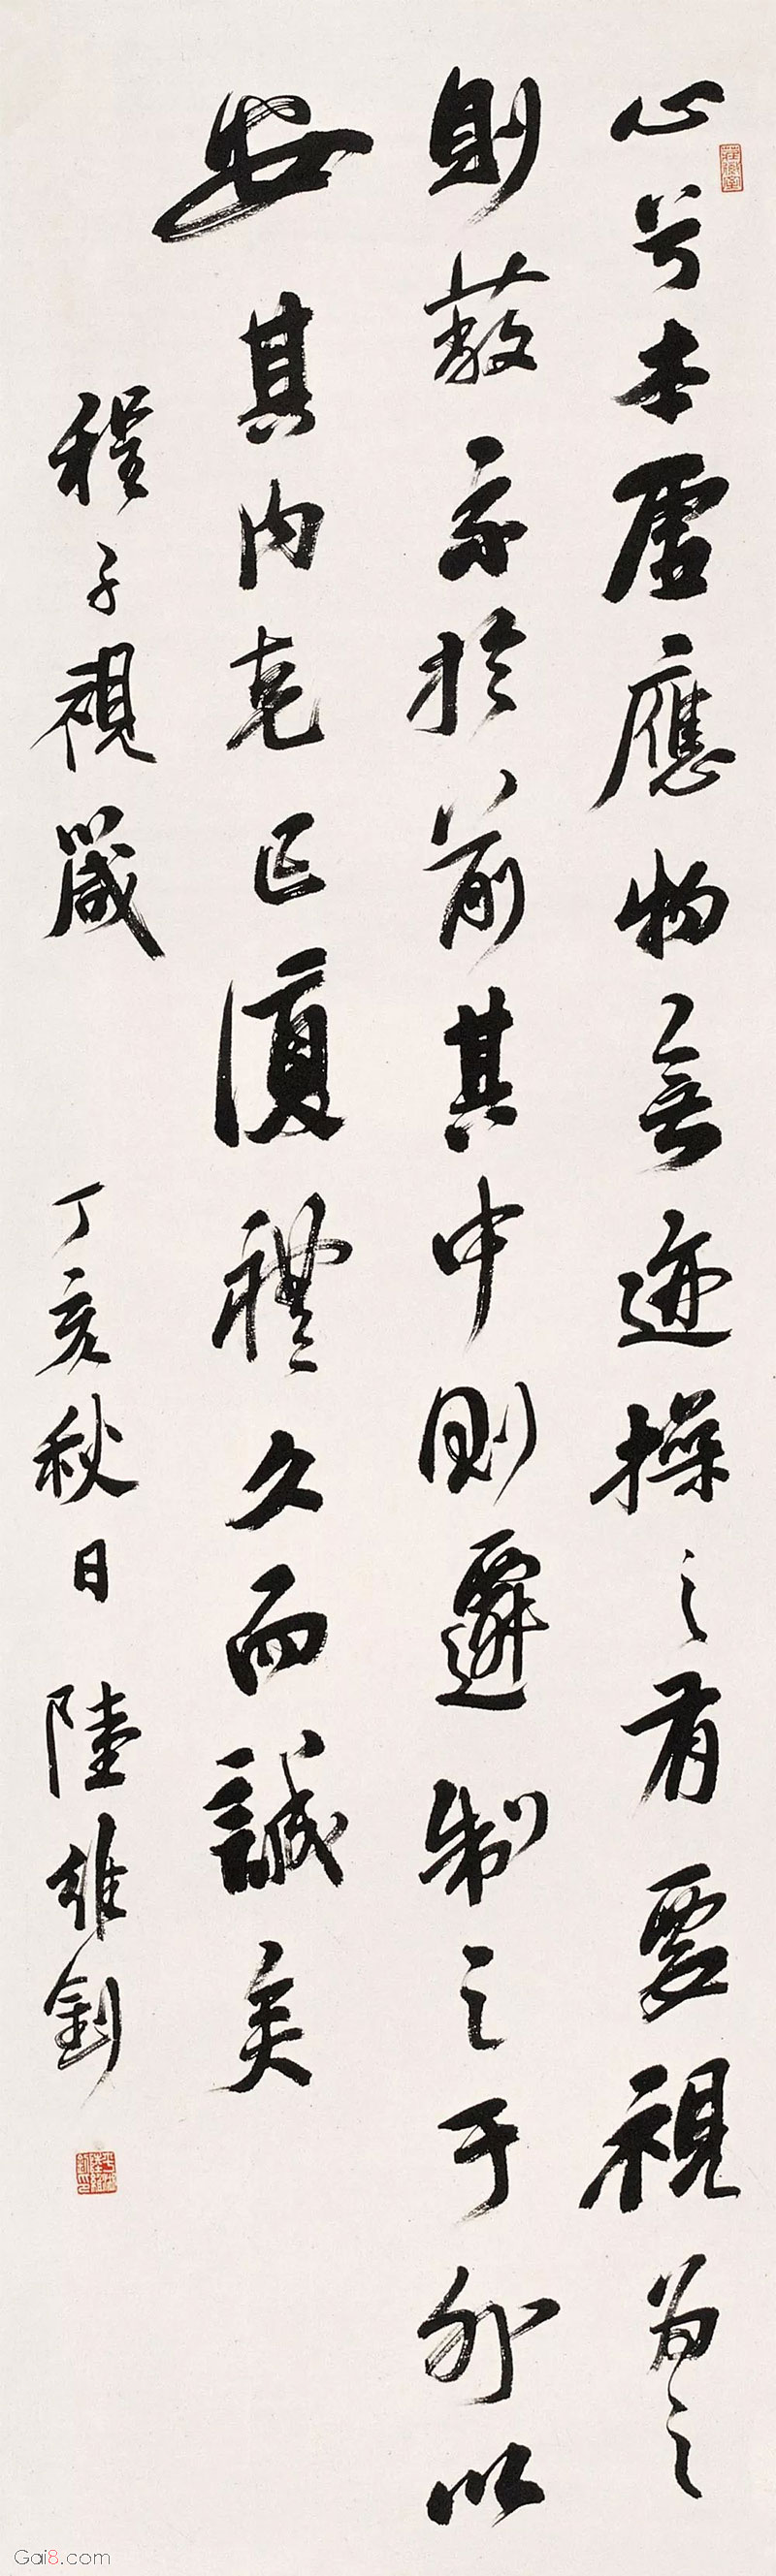 心兮本虛應物無迹操之有要視為之
則蔽交於前其中則遷制之于外以
安其內克己復禮久而誠矣
程子視箴 丁亥秋日 陸維釗
Gai8.com